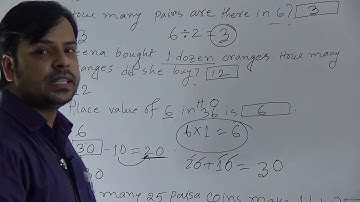 How many pairs are there in 6? 3
3 6÷2=3
eena bought 1 dozen oranges. How many
ranges did she buy? 12
12
Place value of 6 in 36 is 6
6 6×1=6
30 -10=20
30 20+10=30
many 25 paisa coins make